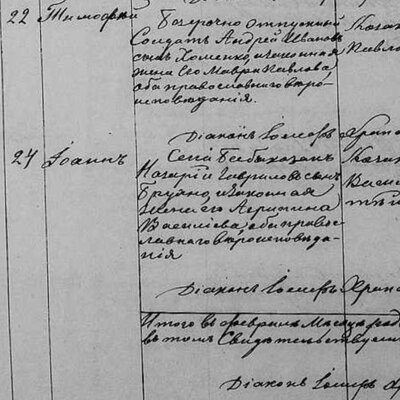 22 Тимофей
Безсрочно отпускный
Солдатъ Андрей Ивановъ
сынъ Хоменко, и законная
жена его Мавра Павлова,
оба православнаго вѣро-
исповѣданія.
Казак
Павло
Діаконъ Іосифъ Хра
24 Іоаннъ
Сей
Казакъ
Назарій Гавриловъ сынъ
и законная
жена его Агрипина
Василіева, оба право-
славнаго вѣроисповѣда-
нія
Казак
Васи
Діаконъ Іосифъ Хра
Итого въ февралѣ Мѣсяцѣ
въ томъ Свидѣтельствуем
Діаконъ Іосифъ